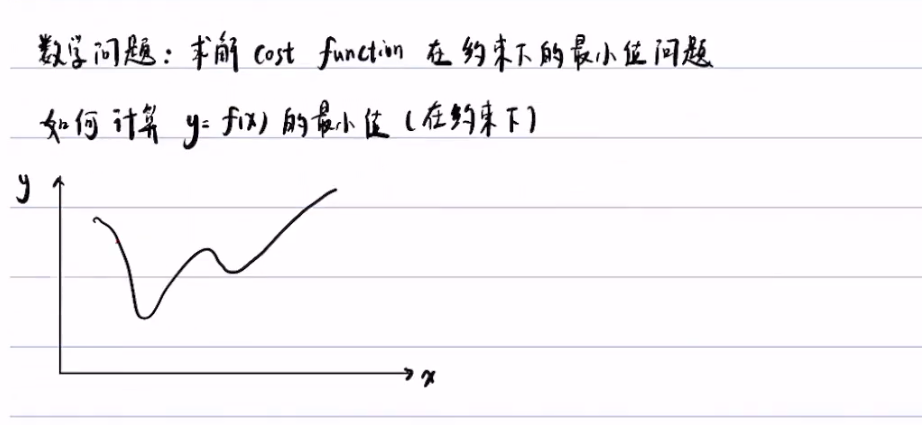 数学问题：求解 cost function 在约束下的最小值问题
如何计算 y= f(x) 的最小值 (在约束下)
y
x